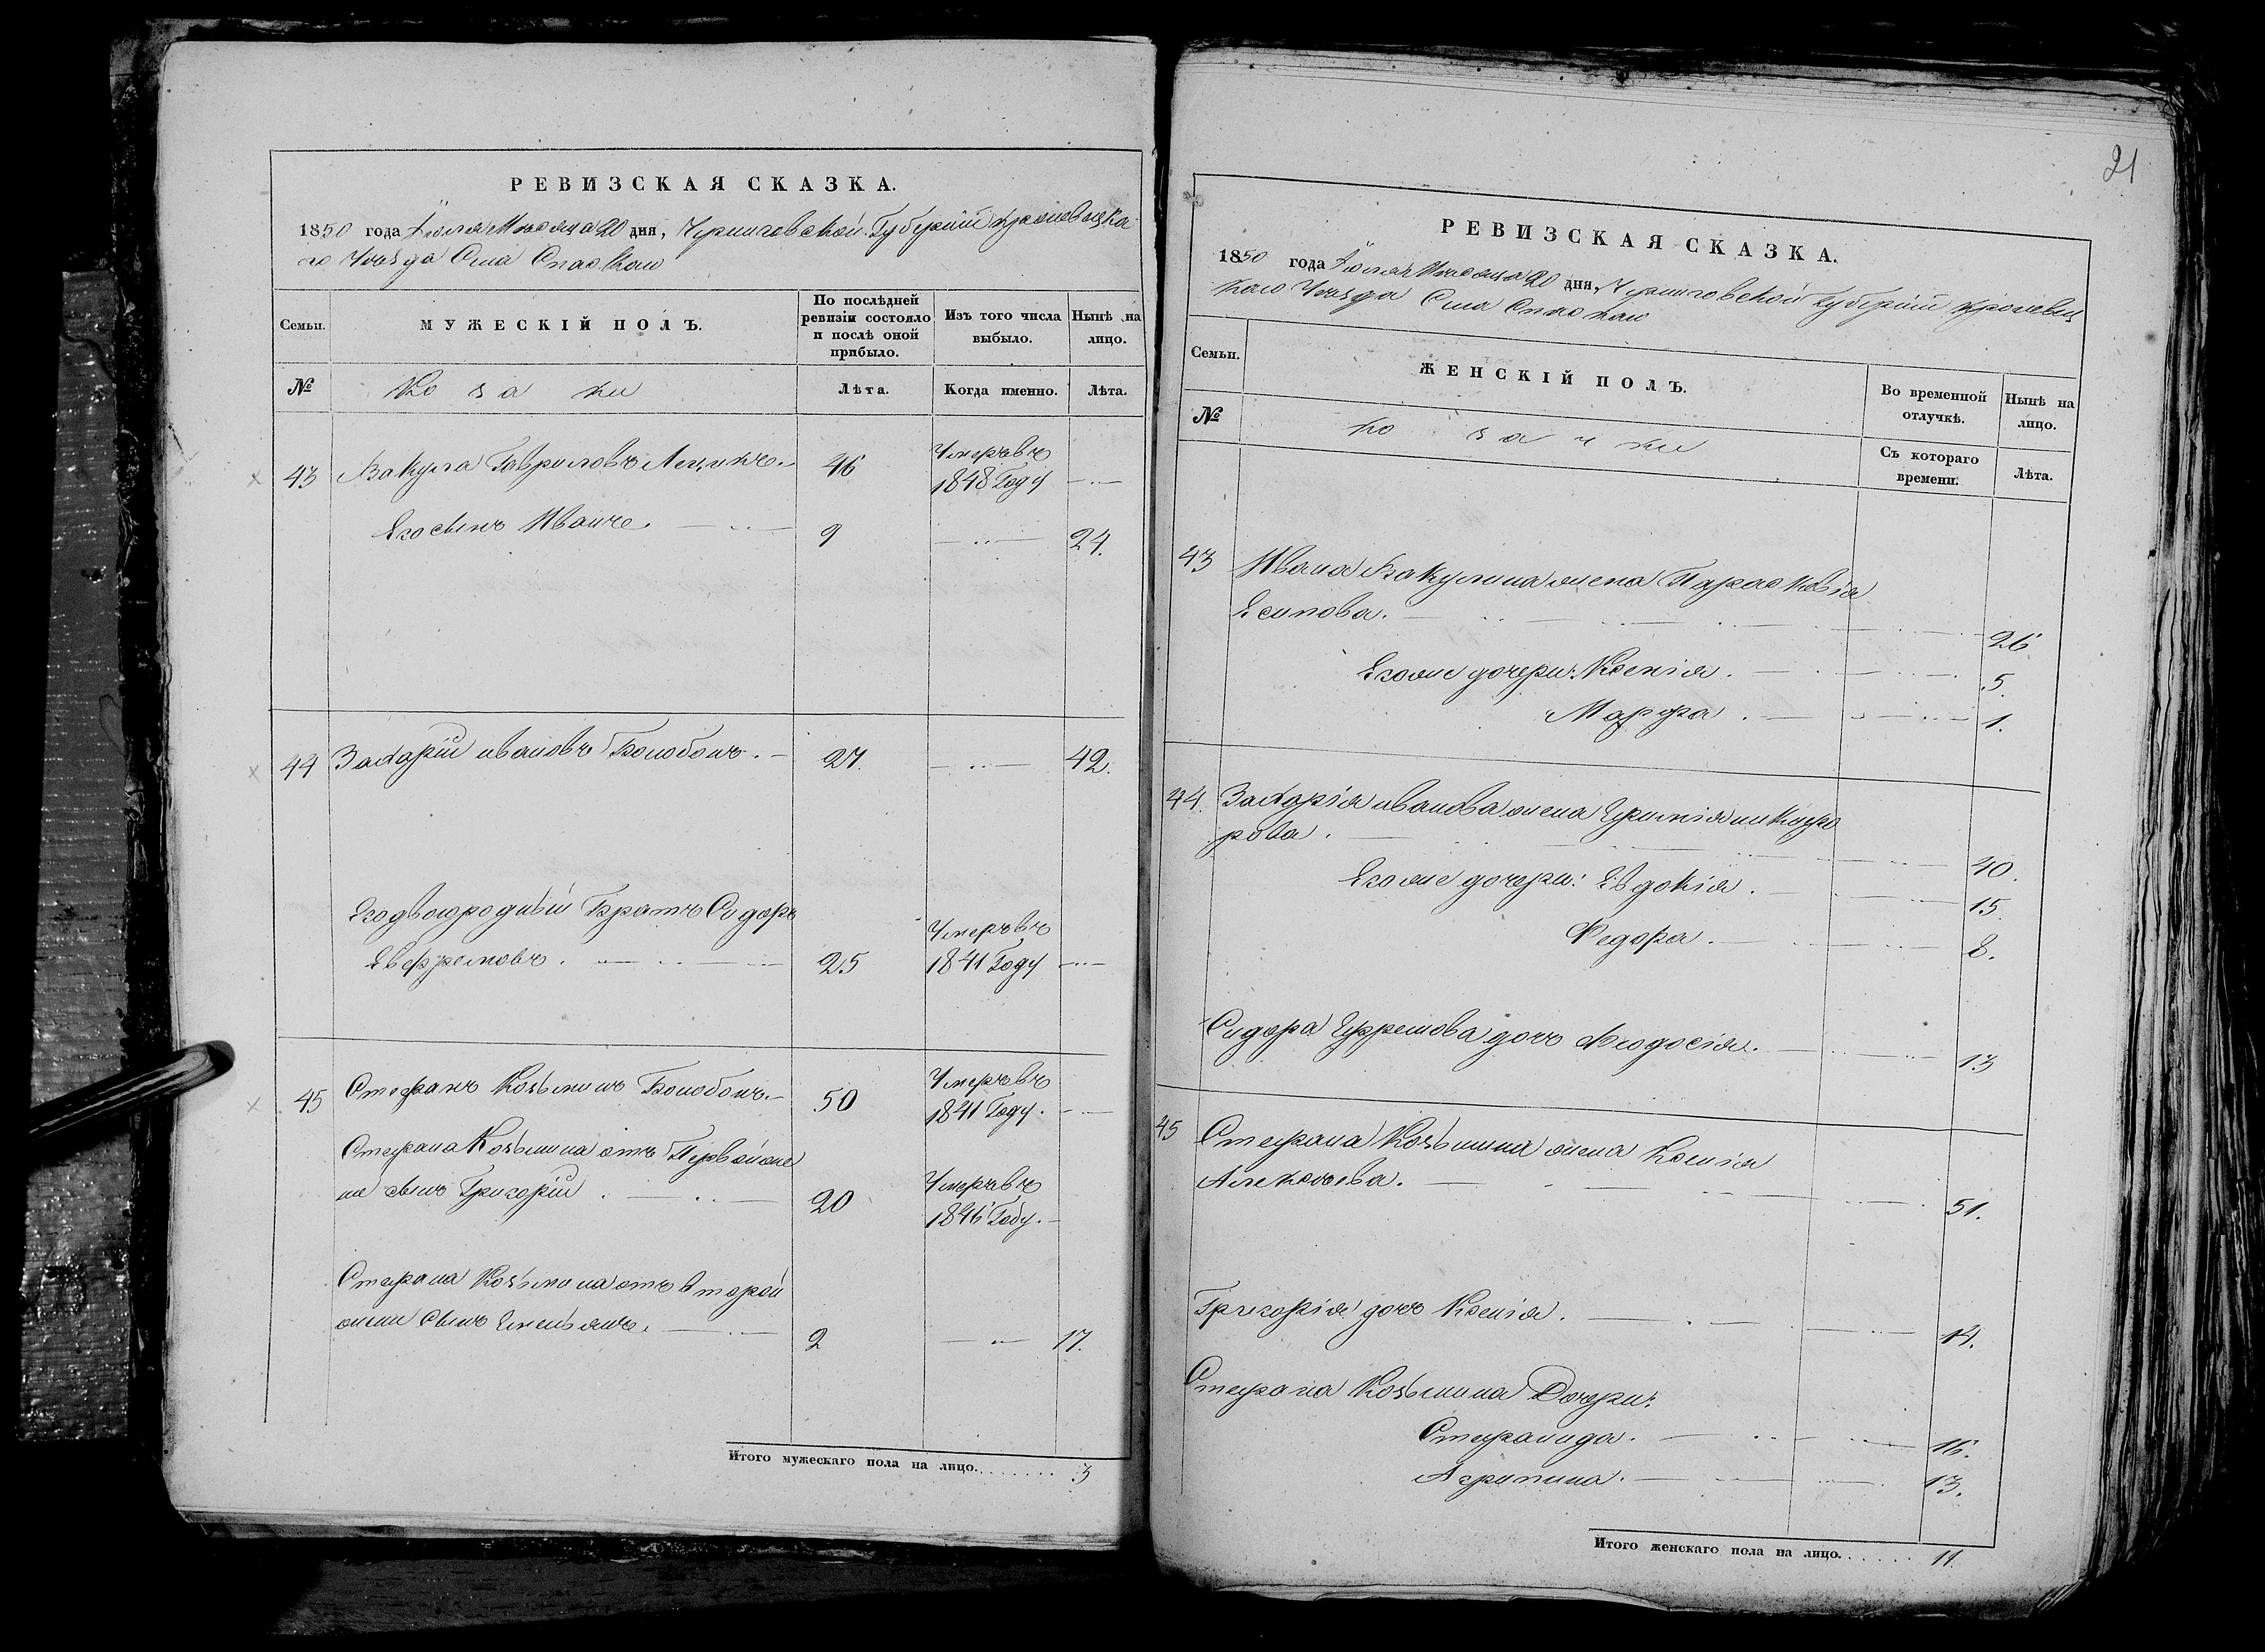 РЕВИЗСКАЯ СКАЗКА.
1850 года Июля Месяца 20 дня, Черниговской Губернии Кролевецка
го Уезда Села Спаскаго
Семьи.
МУЖЕСКІЙ ПОЛЪ.
По послѣдней ревизіи состояло и послѣ оной прибыло.
Изъ того числа выбыло.
Нынѣ на лицо.
№
Козаки
Лѣта.
Когда именно.
Лѣта.
43 Вакула Гавриловъ 46 Умеръ въ
1848 Году
Его сынъ Иванъ. 9 24.
44 Захарій Ивановъ Болобонъ. 27. 42.
Его двоюродный Братъ Сидоръ
Евфремовъ. 25 Умеръ въ
1841 Году
45 Стефанъ Козьминъ Болобонъ. 50 Умеръ въ
1841 Году.
Стефана Козьмина отъ Первой же
ны сынъ Григорій. 20 Умеръ въ
1846 Году.
Стефана Козьмина отъ второй
жены сынъ Емельянъ. 2 17.
Итого мужескаго пола на лицо. 3
21
РЕВИЗСКАЯ СКАЗКА.
1850 года Июля Месяца 20 дня, Черниговской Губернии Кролевец
каго Уезда Села Спаскаго
Семьи.
ЖЕНСКІЙ ПОЛЪ.
Во временной отлучкѣ.
Нынѣ на лицо.
№
Козачки
Съ котораго времени.
Лѣта.
43 Ивана Вакулина жена Парасковія
Есипова. 26
Его же дочери: Ксенія. 5.
Марфа. 1.
44. Захарія Иванова жена Ирина Никифо
рова. 40.
Его же дочери: Евдокія. 15.
Федора. 8.
Сидора Ефремова дочь Феодосія. 13
45 Стефана Козьмина жена Ксенія
Алексеева. 51.
Григорія дочь Ксенія. 14.
Стефана Козьмина Дочери:
Стефанида. 16.
Агрипина. 13.
Итого женскаго пола на лицо. 11.